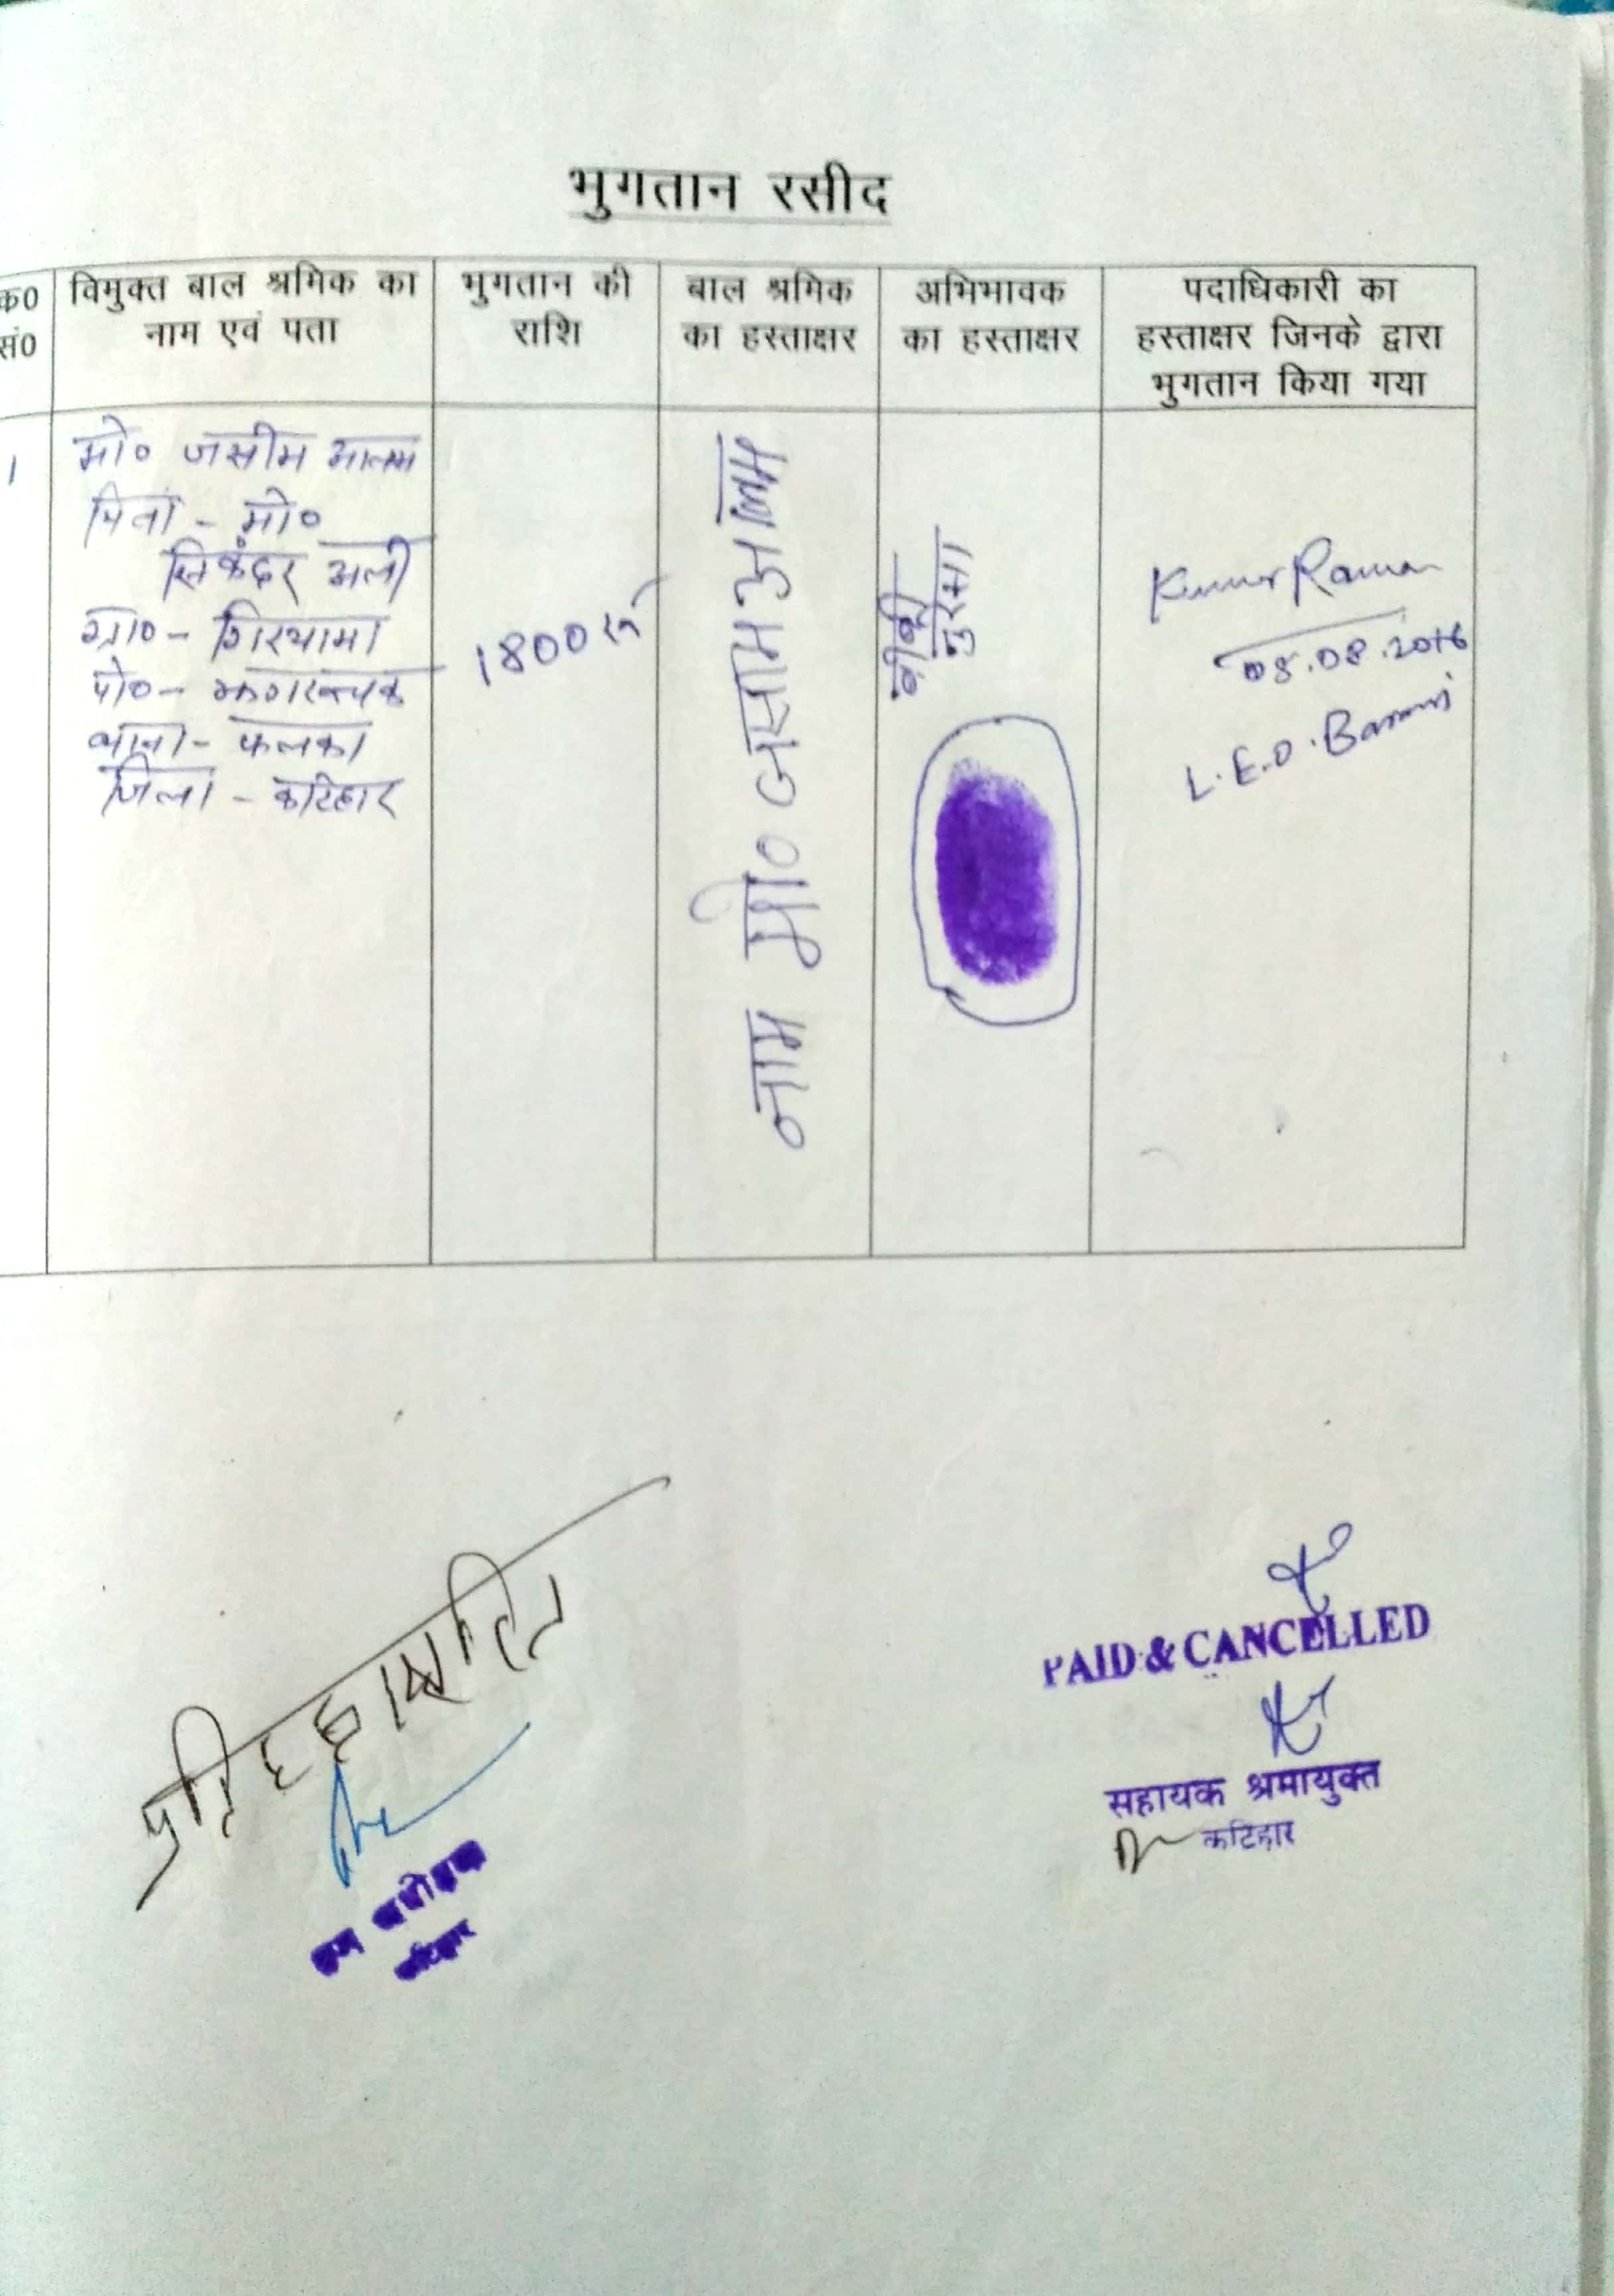 भुगतान रसीद
क0 सं0
विमुक्त बाल श्रमिक का
नाम एवं पता
भुगतान की
राशि
बाल श्रमिक
का हस्ताक्षर
अभिभावक
का हस्ताक्षर
पदाधिकारी का
हस्ताक्षर जिनके द्वारा
भुगतान किया गया
1
मो० जसीम आलम
पिता - मो०
सिकंदर अली
ग्रा०-
पो०-
थाना - फलका
जिला - कटिहार
1800
नाम मो० जसाम आलम
बीबी
नुरसा
Kumar Raman
05.08.2016
L.E.O. Barari
प्रतिहस्ताक्षरित
कटिहार
PAID & CANCELLED
सहायक श्रमायुक्त
कटिहार